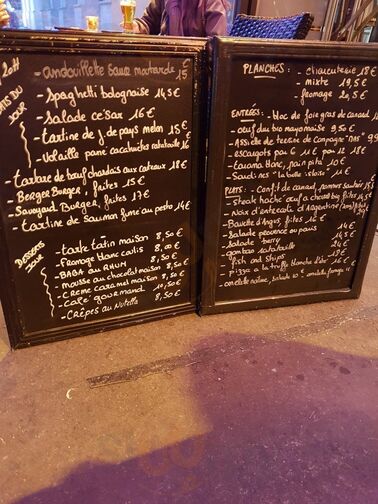 20H
PLATS DU JOUR
- andouillette sauce moutarde 15€
- Spaghetti bolognaise 14,5€
- Salade cesar 16€
- tartine de j de pays melon 15€
- Volaille pané cacahuètes ratatouille 16
- tartare de boeuf charolais aux cateaux 18€
- BERGER Burger, frites 15€
- Savoyard Burger, frites 17€
- tartine de saumon fumé au pesto 14€
DESSERTS JOUR
- tarte tatin maison 8,50€
- fromage blanc coulis 8,00€
- BABA au RHUM 8,50€
- mousse au chocolat maison 8,50€
- creme caramel maison 8,50€
- Café gourmand 10,50€
- CRÊPES au Nutella 8,50€
PLANCHES : - charcuterie 18€
- mixte 19,5€
- fromage 20,5€
ENTRÉES : - bloc de foie gras de canard
- oeuf dur bio mayonnaise 9,50€
- Assiette de terrine de campagne "NAS" 9,5
- escargots par 6 11€ par 12 18€
- tarama blanc, pain pita 10€
- Sardines "la belle iloise" 11€
PLATS : - Confit de canard, pommes sautées
- Steak haché oeuf à cheval bio, frites 14,5
- Noix d'entrecote d'Argentine
- Bavette d'Angus frites 16€
- Salade perouvence au paris 14€
- Salade berry 14,5€
- gambas ratatouille 24€
- fish and ships 19€
- pizza a la truffe blanche d'été
- omelette nature, salade 10€